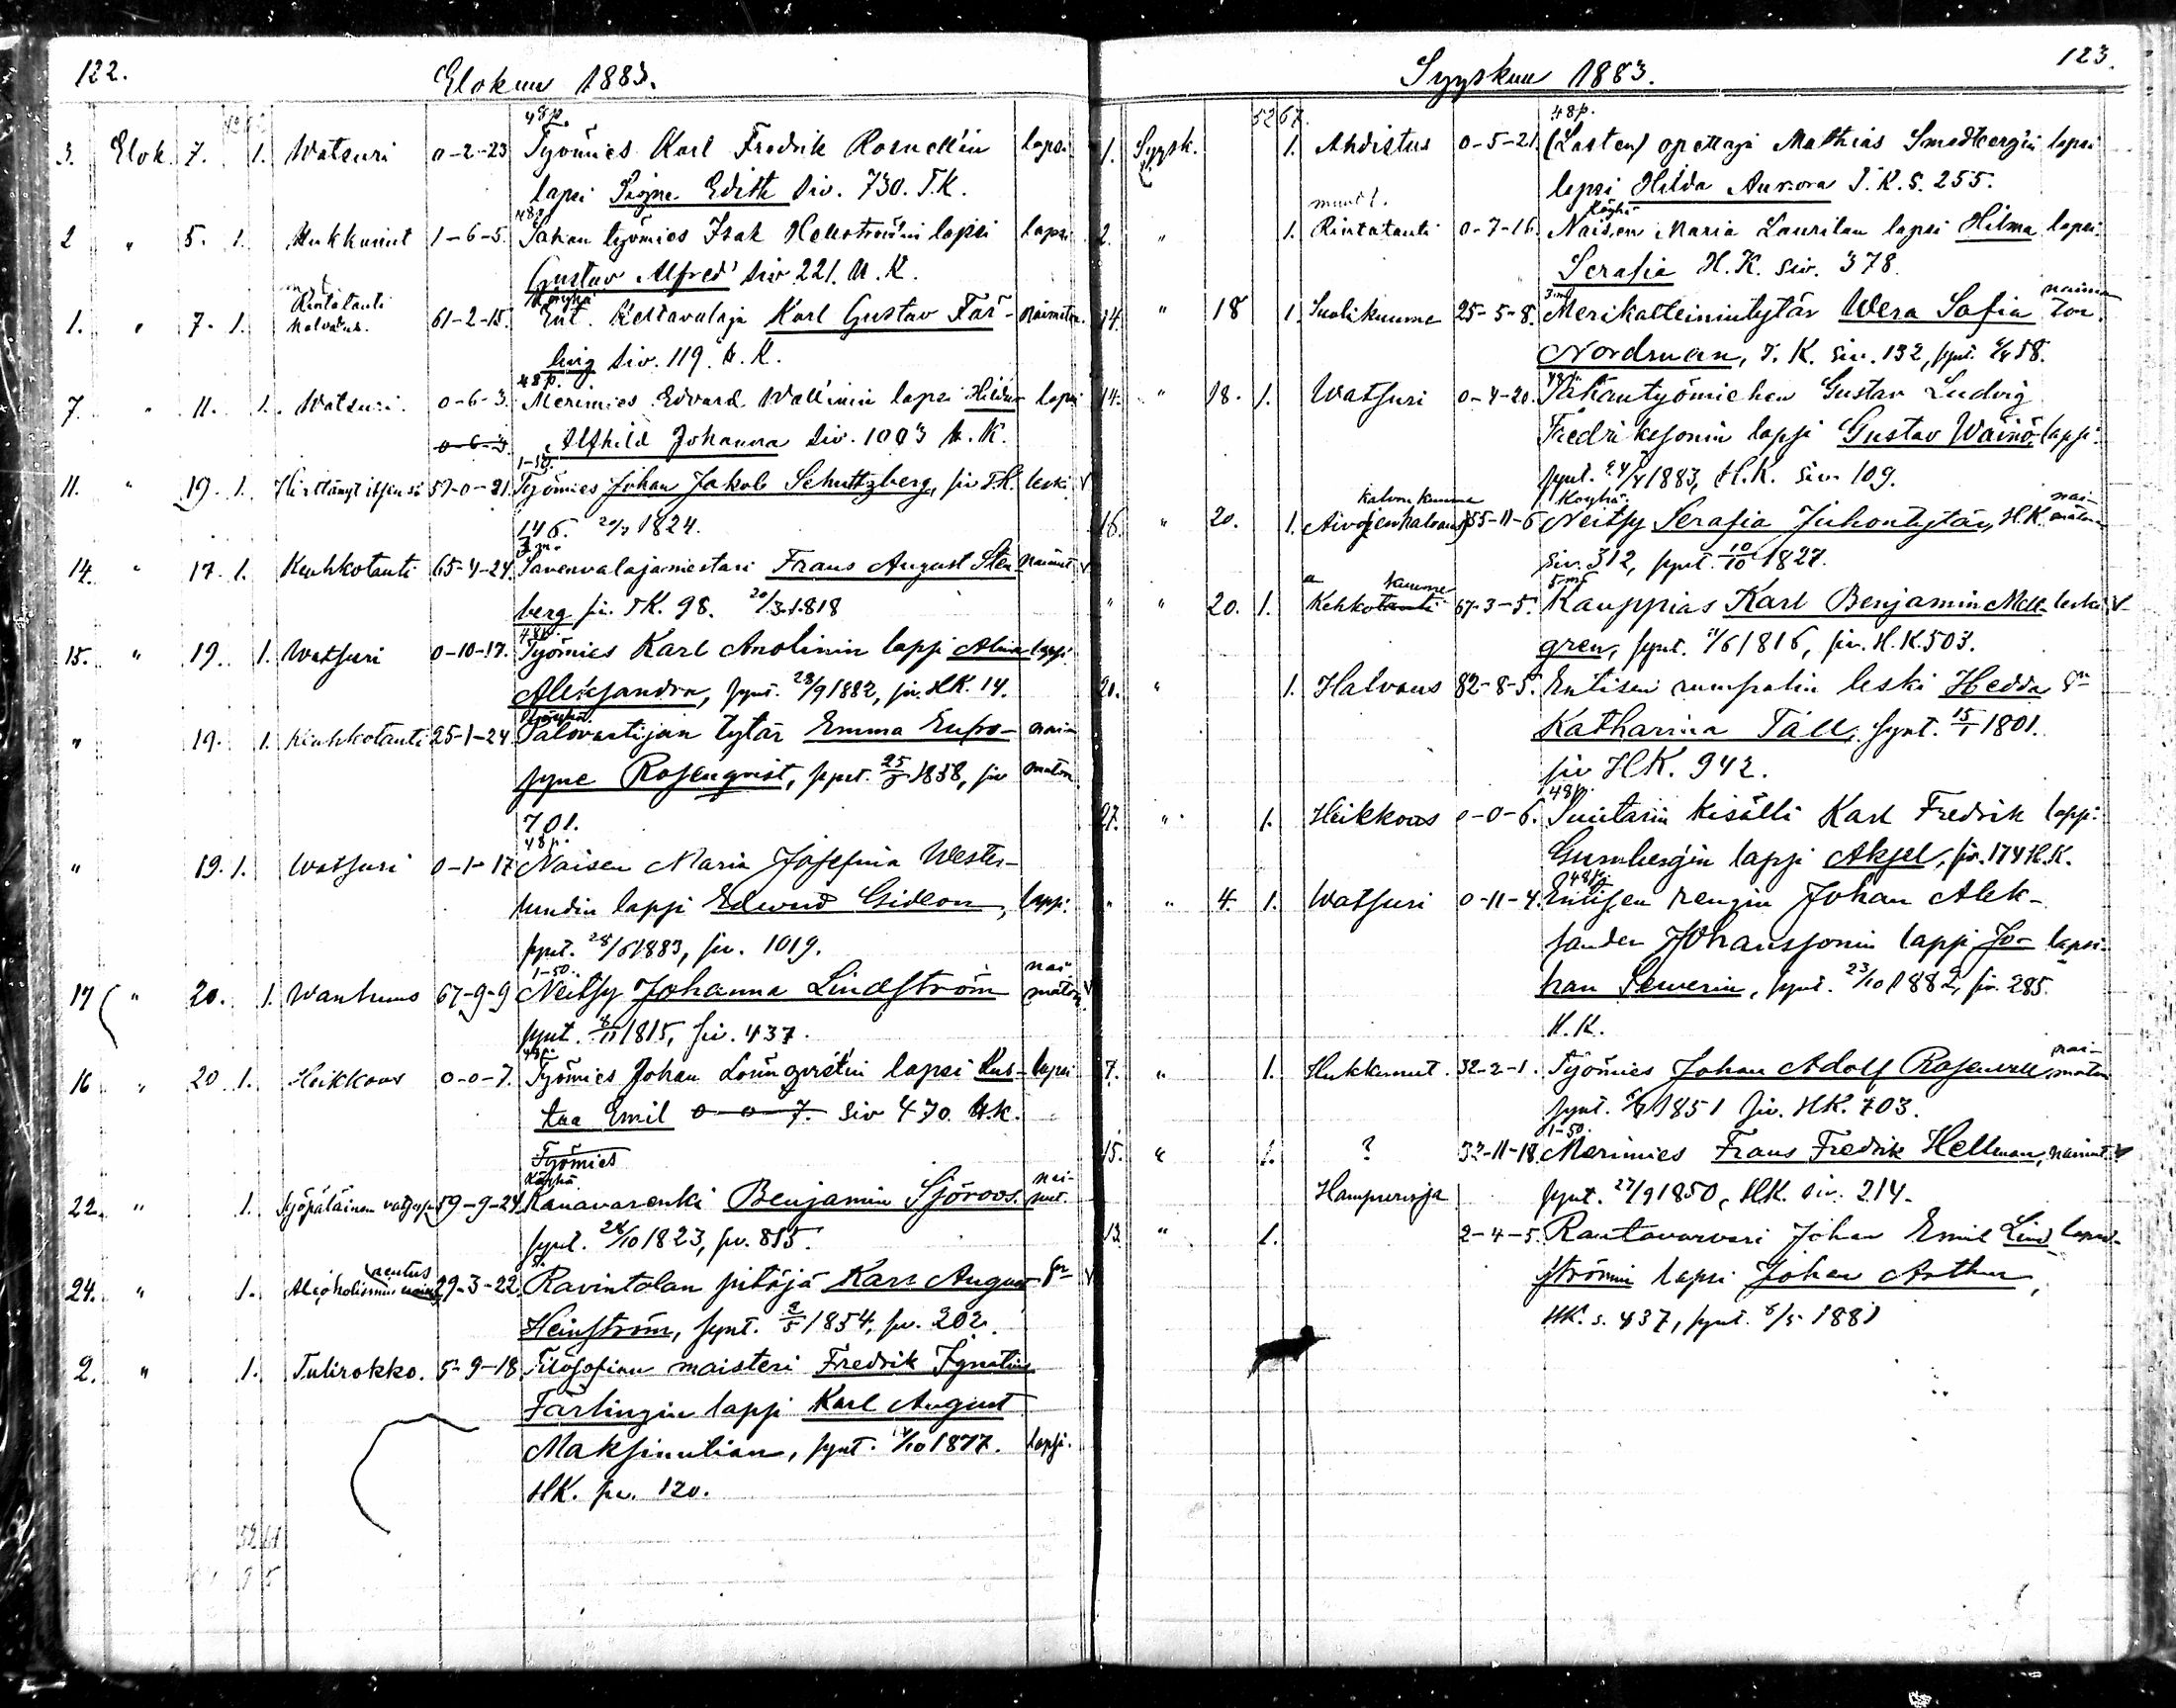 122.
Elokuu 1883.
48p.
3. Elok. 7. 1. Watsuri 0-2-23 Työmies Karl Fredrik Rosnell'in lapsi
lapsi Signe Edith siv. 730. T.K.
48p
2 " 5. 1. Hukkunut 1-6-5. Sahan työmies Isak Hellström'in lapsi lapsi
Gustav Alfred siv 221. U.K.
Rintatauti Köyhä
1. " 7. 1. halvaus. 61-2-15. Ent. Kellavalaja Karl Gustav Far- naimaton
ling siv. 119. H.K.
48p.
7. " 11. 1. Watsuri. 0-6-3. Merimies Edvard Wallinin lapsi Hildur lapsi
0-6-3 Alfhild Johanna siv. 1003 H.K.
1-50.
11. " 19. 1. Hirttänyt itsensä 59-0-21. Työmies Johan Jakob Schultzberg, siv T.K. leski. v
146. 20/7 1824.
3 m.
14. " 17. 1. Keuhkotauti 65-4-24. Savenvalajamestari Frans August Sten- nainut v
berg siv. T.K. 98. 20/3 1818
48p.
15. " 19. 1. Watsuri 0-10-17. Työmies Karl Anolinin lapsi Alina lapsi.
Aleksandra, synt. 28/9 1882, siv. H.K. 14.
Köyhä.
" 19. 1. Keuhkotauti 25-1-24 Palovartijan tytär Emma Eufro- nai-
syne Rosenqvist, synt. 25/5 1858, siv maton
701.
48p.
" 19. 1. Watsuri 0-1-17 Naisen Maria Josefina Wester-
lundin lapsi Edward Gideon, lapsi.
synt. 28/6 1883, siv. 1019.
1-50. nai-
17 " 20. 1. Wanhuus 67-9-9 Neitsy Johanna Lindström maton v
synt. 8/11 1815, siv. 437.
48p.
16 " 20. 1. Heikkous 0-0-7. Työmies Johan Lönnqvist'in lapsi Kus- lapsi
taa Emil 0-0-7. siv 470. H.K.
Työmies
Köyhä nai-
22. " 1. Syöpäläinen vatsassa 59-9-24 Kanavarenki Benjamin Sjöroos. nut.
synt. 28/10 1823, siv. 815.
24. " 1. Alkoholismin 29-3-22. Ravintolan pitäjä Karl August v
Heinström, synt. 2/5 1854, siv. 202.
2. " 1. Tulirokko. 5-9-18 Filosofian maisteri Fredrik Ignatius
Färlingin lapsi Karl August
Maksimilian, synt. 14/10 1877. lapsi.
HK. siv. 120.
52 61
123.
Syyskuu 1883.
52 67.
48p.
1. Syysk. 1. Ahdistus 0-5-21. (Lasten) opettaja Mathias Smedberg'in lapsi
lapsi Hilda Aurora T.K.S. 255.
Köyhä
2. " 1. Rintatauti 0-7-16. Naisen Maria Laurilan lapsi Hilma lapsi.
Serafia H.K. siv. 378.
3 m naima-
14. " 18 1. Suolikuume 25-5-8. Merikatteinintytär Wera Sofia ton.
Nordman, T.K. siv. 132, synt. 6/4 58.
48p.
14. " 18. 1. Watsuri 0-4-20. Sahantyömiehen Gustav Ludvig
Fredriksonin lapsi Gustav Wäinö lapsi.
synt. 24/4 1883, H.K. siv. 109.
kalvon kuume Köyhä. nai-
16. " 20. 1. Aivojenhalvaus 55-11-6 Neitsy Serafia Juhontytär, H.K. maton
siv. 312, synt. 10/10 1827.
kuume 5 m
" " 20. 1. Kehkotauti 67-3-5. Kauppias Karl Benjamin Mell- leski v
gren, synt. 11/6 1816, siv. H.K. 503.
20. " 1. Halvaus 82-8-5. Entisen rumpalin leski Hedda
Katharina Täll, synt. 15/1 1801.
siv HK. 942.
48p.
27. " 1. Heikkous 0-0-6. Suutarin kisälli Karl Fredrik lapsi
Grünberg'in lapsi Aksel, siv. 174 H.K.
48p.
" " 4. 1. Watsuri 0-11-4. Entisen rengin Johan Alek-
sander Johanssonin lapsi Jo- lapsi.
han Sewerin, synt. 23/10 1882, siv. 285.
H.K.
nai-
7. " 1. Hukkunut. 32-2-1. Työmies Johan Adolf Rosenvall, maton
synt. 6/7 1851 siv. HK. 703.
1-50.
15. " 1. ? 32-11-18. Merimies Frans Fredrik Hellman, nainut. v
Hampurissa synt. 27/9 1850, HK. siv. 214.
13. " 1. 2-4-5. Rautavarvari Johan Emil Lind- lapsi.
strömin lapsi Johan Arthur,
HK. s. 437, synt. 8/5 1881